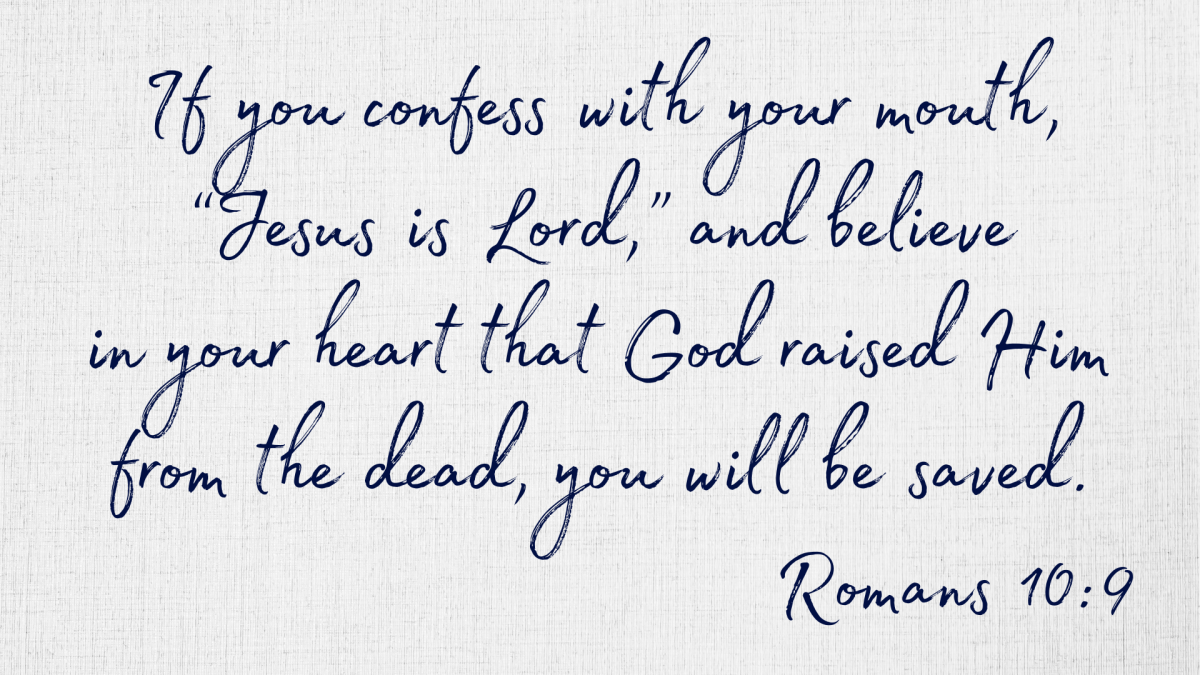 If you confess with your mouth,
“Jesus is Lord,” and believe
in your heart that God raised Him
from the dead, you will be saved.
Romans 10:9